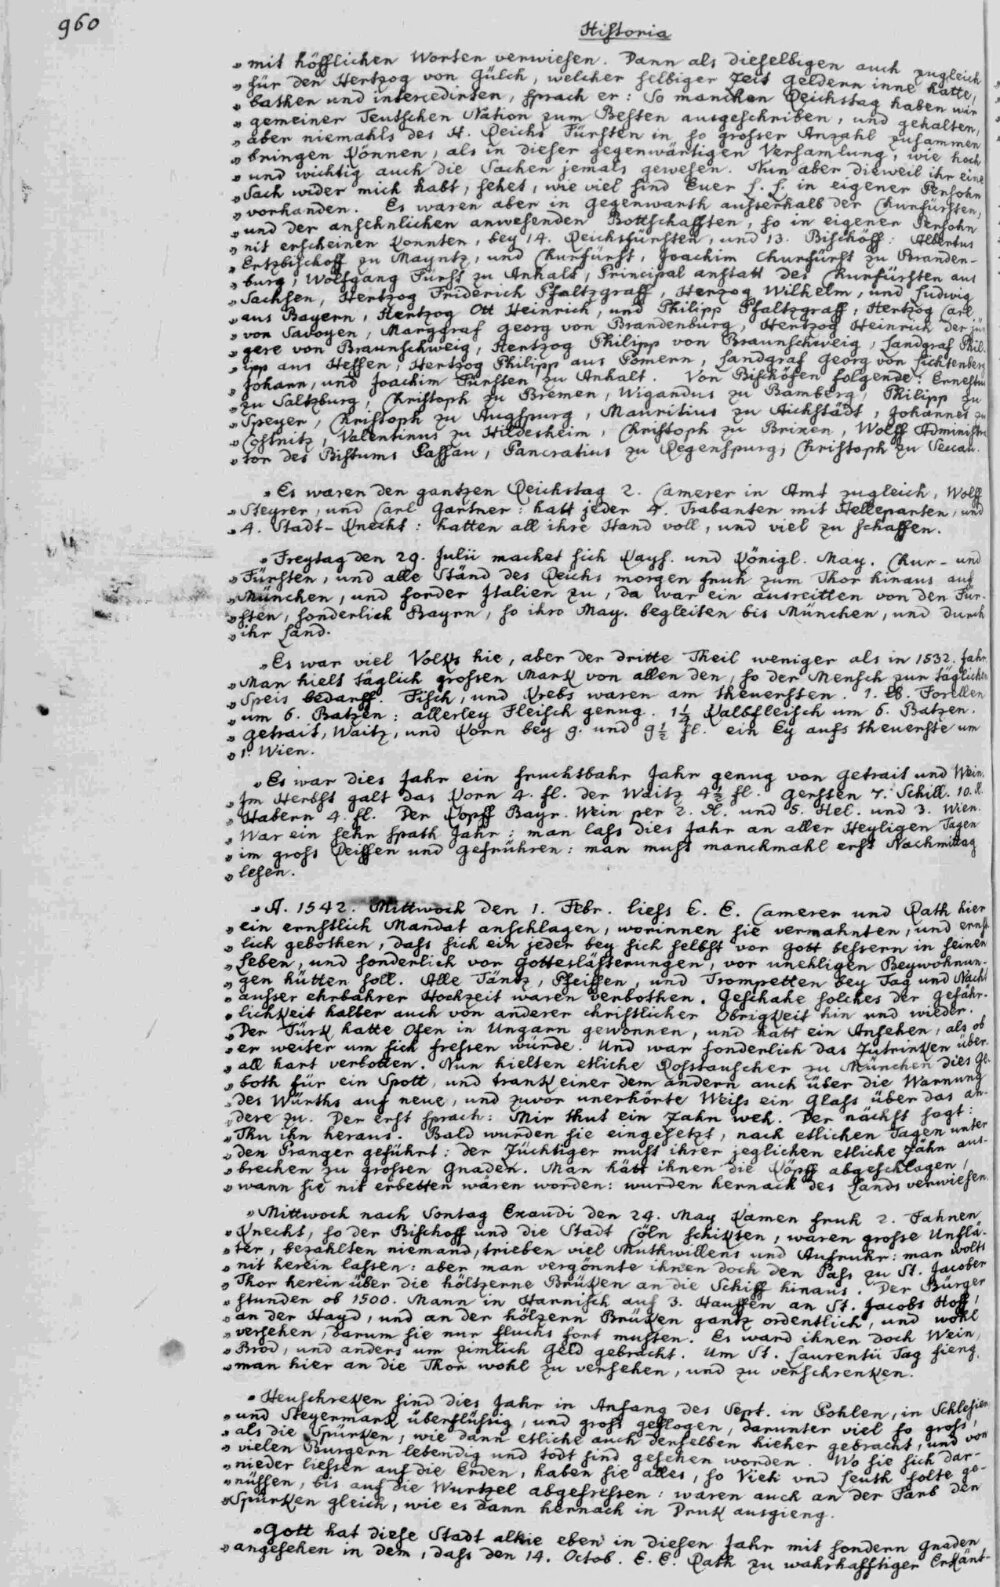 960
Historia
" mit höfflichen Worten verwiesen. Dann als dieselbigen auch zugleich
" für den Hertzog von Gülch, welcher selbiger Zeit Geldern inne hatte,
" bathen und intercedirten, sprach er: So manchen Reichstag haben wir
" gemeiner Teutschen Nation zum Besten ausgeschriben, und gehalten,
" aber niemahls des H. Reichs Fürsten in so grosser Anzahl zusammen
" bringen können, als in dieser gegenwärtigen Versamlung, wie hoch
" und wichtig auch die Sachen jemals gewesen. Nun aber dieweil ihr eine
" Sach wider mich habt, sehet, wie viel sind Euer f. f. in eigener Persohn
" vorhanden. Es waren aber in Gegenwarth ausserhalb der Churfürsten,
" und der ansehnlichen anwesenden Bottschafften, so in eigener Persohn
" nit erscheinen konnten, bey 14. Reichsfürsten, und 13. Bischöff: Albertus
" Ertzbischoff zu Mayntz, und Churfürst, Joachim Churfürst zu Branden-
" burg, Wolfgang Fürst zu Anhalt, Principal anstatt des Churfürsten aus
" Sachsen, Hertzog Friderich Pfaltzgraff, Herzog Wilhelm, und Ludwig
" aus Bayern, Hertzog Ott Heinrich, und Philipp Pfaltzgraff, Hertzog Carl
" von Savoyen, Marggraf Georg von Brandenburg, Hertzog Heinrich der jün
" gere von Braunschweig, Hertzog Philipp von Braunschweig, Landgraf Phil-
" ipp aus Hessen, Hertzog Philipp aus Pomern, Landgraf Georg von Lichtenberg
" Johann, und Joachim Fürsten zu Anhalt. Von Bischöfen folgende: Ernestus
" zu Saltzburg, Christoph zu Bremen, Wigandus zu Bamberg, Philipp zu
" Speyer, Christoph zu Augspurg, Mauritius zu Aichstädt, Johannes zu
" Costnitz, Valentinus zu Hildesheim, Christoph zu Brixen, Wolff Administra
" tor des Bistums Passau, Pancratius zu Regenspurg, Christoph zu Seccau.
" Es waren den gantzen Reichstag 2. Camerer in Amt zugleich, Wolff
" Steyrer, und Carl Gartner: hatt jeder 4. Trabanten mit Helleparten, und
" 4. Stadt-Knecht: hatten all ihre Hand voll, und viel zu schaffen.
" Freytag den 29. Julii machet sich Kays. und Königl. May. Chur- und
" Fürsten, und alle Ständ des Reichs morgen fruh zum Thor hinaus auf
" München, und forder Italien zu, da war ein ausreitten von den Für-
" sten, sonderlich Bayrn, so ihro May. begleiten bis München, und durch
" ihr Land.
" Es war viel Volks hie, aber der dritte Theil weniger als in 1532. Jahr
" Man hielt täglich grossen Mark von allen den, so der Mensch zur täglichen
" Speis bedarff. Fisch, und Krebs waren am theuersten. 1. ℔. Forellen
" um 6. Batzen: allerley Fleisch genug. 1¼ Kalbfleisch um 6. Batzen.
" Getrait, Waitz, und Korn bey 9. und 9½ fl. ein Ey aufs theuerste um
" 1. Wien.
" Es war dies Jahr ein fruchtbahr Jahr genug von Getrait und Wein.
" Im Herbst galt das Korn 4. fl. der Waitz 4½ fl. Gersten 7. Schill. 10. dl.
" Habern 4. fl. Der Kopff Bayr. Wein per 2. dl. und 5. Hel. und 3. Wien.
" War ein sehr spath Jahr: man lass dies Jahr an aller Heyligen Tagen
" im gross Reiffen und Gefrühren: man must manchmahl erst Nachmittag
" lesen.
" A. 1542. Mittwoch den 1. Febr. liess E. E. Camerer und Rath hier
" ein ernstlich Mandat anschlagen, worinnen sie vermahnten, und ernst
" lich gebothen, dass sich ein jeder bey sich selbst vor Gott bessern in seinen
" Leben, und sonderlich vor Gotteslästerungen, vor unehligen Beywohnun-
" gen hütten soll. Alle Täntz, Pfeiffen, und Trompetten bey Tag und Nacht
" ausser ehrbahrer Hochzeit waren verbothen. Geschahe solches der gefähr-
" lichkeit halber auch von anderer christlicher Obrigkeit hin und wieder.
" Der Türk hatte Ofen in Ungarn gewonnen, und hatt ein Ansehen, als ob
" er weiter um sich fressen würde. Und war sonderlich das Zutrinken über
" all hart verbotten. Nun hielten etliche Rosstauscher zu München dies Ge-
" both für ein Spott, und trank einer dem andern auch über die Warnung
" des Würths auf neue, und zuvor unerhörte Weiss ein Glass über das an-
" dere zu. Der erst sprach: Mir thut ein Zahn weh. Der nächst sagt:
" Thu ihn heraus. Bald wurden sie eingesetzt, nach etlichen Tagen unter
" den Pranger geführt: der Züchtiger must ihrer jeglichen etliche Zähn aus-
" brechen zu grossen Gnaden. Man hätt ihnen die Köpff abgeschlagen,
" wann sie nit erbetten wären worden: wurden hernach des Lands verwiesen.
" Mittwoch nach Sontag Exaudi den 24. May kamen fruh 2. Fahnen
" Knecht, so der Bischoff und die Stadt Cöln schikten, waren grosse Unflä-
" ter, bezahlten niemand, trieben viel Muthwillens und Aufruhr: man wolts
" nit herein lassen: aber man vergönnte ihnen doch den Pass zu St. Jacober
" Thor herein über die höltzerne Brüken an die Schiff hinaus. Der Bürger
" stunden ob 1500. Mann in Harnisch auf 3. Hauffen an St. Jacobs Hoff,
" an der Hayd, und an der hölzern Brüken gantz ordentlich, und wohl
" versehen, darum sie nur flucks fort musten. Es ward ihnen doch Wein,
" Brod, und anders um zimlich Geld gebracht. Um St. Laurentii Tag fieng
" man hier an die Thor wohl zu versehen, und zu verschrenken.
" Heuschreken sind dies Jahr in Anfang des Sept. in Pohlen, in Schlesien
" und Steyermark überflüssig, und gross geflogen, darunter viel so gross,
" als die Spürken, wie dann etliche auch derselben hieher gebracht, und von
" vielen Burgern lebendig und todt sind gesehen worden. Wo sie sich dar-
" nieder liessen auf die Erden, haben sie alles, so Vieh und Leuth solte ge-
" nüssen, bis auf die Wurtzel abgefressen: waren auch an der Farb den
" Spürken gleich, wie es dann hernach in Druk ausgieng.
" Gott hat diese Stadt alhie eben in diesen Jahr mit sondern Gnaden
" angesehen in dem, dass den 14. Octob. E. E. Rath zu wahrhafftiger Erkänt-